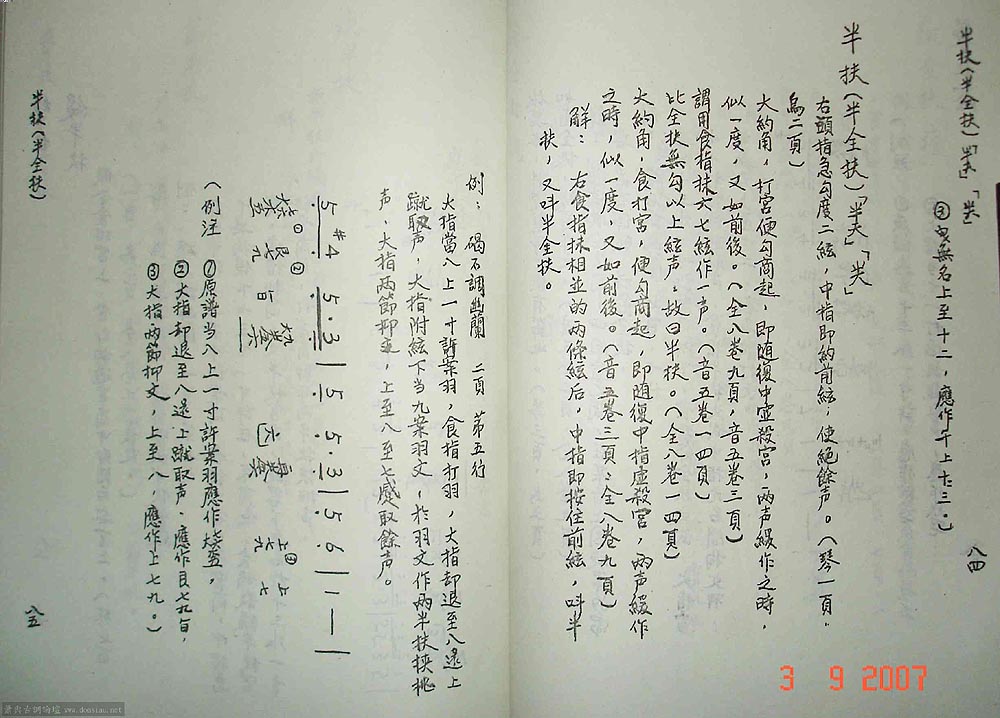 半扶(半全扶)「半夫」「䒑夫」
③宛無名上至十二，應作午上十三。)
八四
半扶(半全扶)「半夫」
右頭指急勾度二絃，中指即約前絃，使絕餘聲。(琴一頁.
烏二頁)
大約角，打宮便勾商起，即隨復中虛殺宮，两声緩作之時，
似一度，又如前後。(全八卷九頁，音五卷三頁)
謂用食指抹六七絃作一声。(音五卷一四頁)
比全扶無勾以上絃声，故曰半扶。(全八卷一四頁)
大約角，食打宮，便勾商起，即隨復中指虛殺宮，两声緩作
之時，似一度，又如前後。(音五卷三頁：全八卷九頁)
解：右食指抹相並的两條絃后，中指即按住前絃，叫半
扶，又叫半全扶。
例：碣石調幽蘭 二頁 第五行
大指當八上一寸許案羽，食指打羽，大指却退至八逺上
蹴取声，大指附絃下当九案羽文，於羽文作两半扶挾挑
声，大指两節抑文，上至八至七蹙取餘声。
5 #4 5·3|5·5·3|5·6|1—|
上七九 上七
(例注 ①原譜当八上一寸許案羽應作
②大指却退至八逺上蹴取声，應作
③大指两節抑文，上至八，應作上七九。)
半扶(半全扶)
八五
3 9 2007